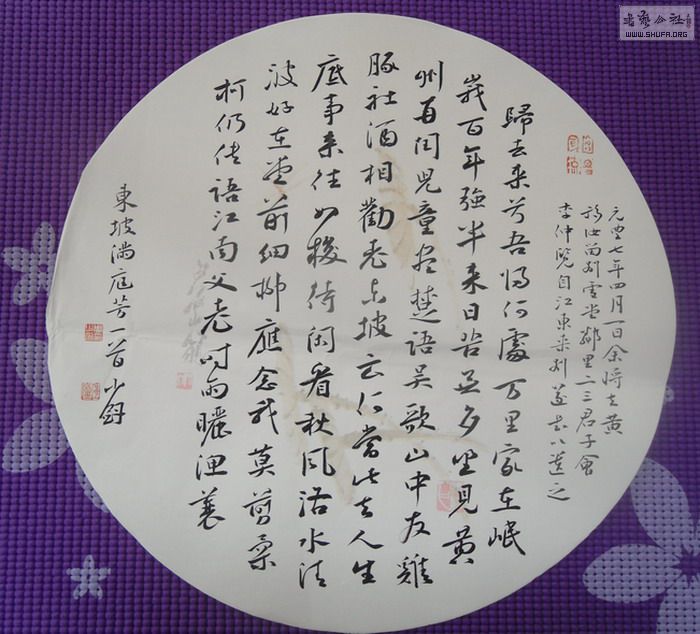 書藝公社
WWW.SHUFA.ORG
元豐七年四月一日余將去黄
移汝留别雪堂鄰里二三君子會
李仲覽自江東来别遂書以遺之
歸去来兮吾歸何處万里家在岷
峩百年強半来日苦無多坐見黄
州再閏兒童盡楚語吴歌山中友雞
豚社酒相勸老東坡云何當此去人生
底事来往如梭待閑看秋風洛水清
波好在堂前細柳應念我莫剪柔
柯仍传語江南父老時與曬漁蓑
東坡滿庭芳一首